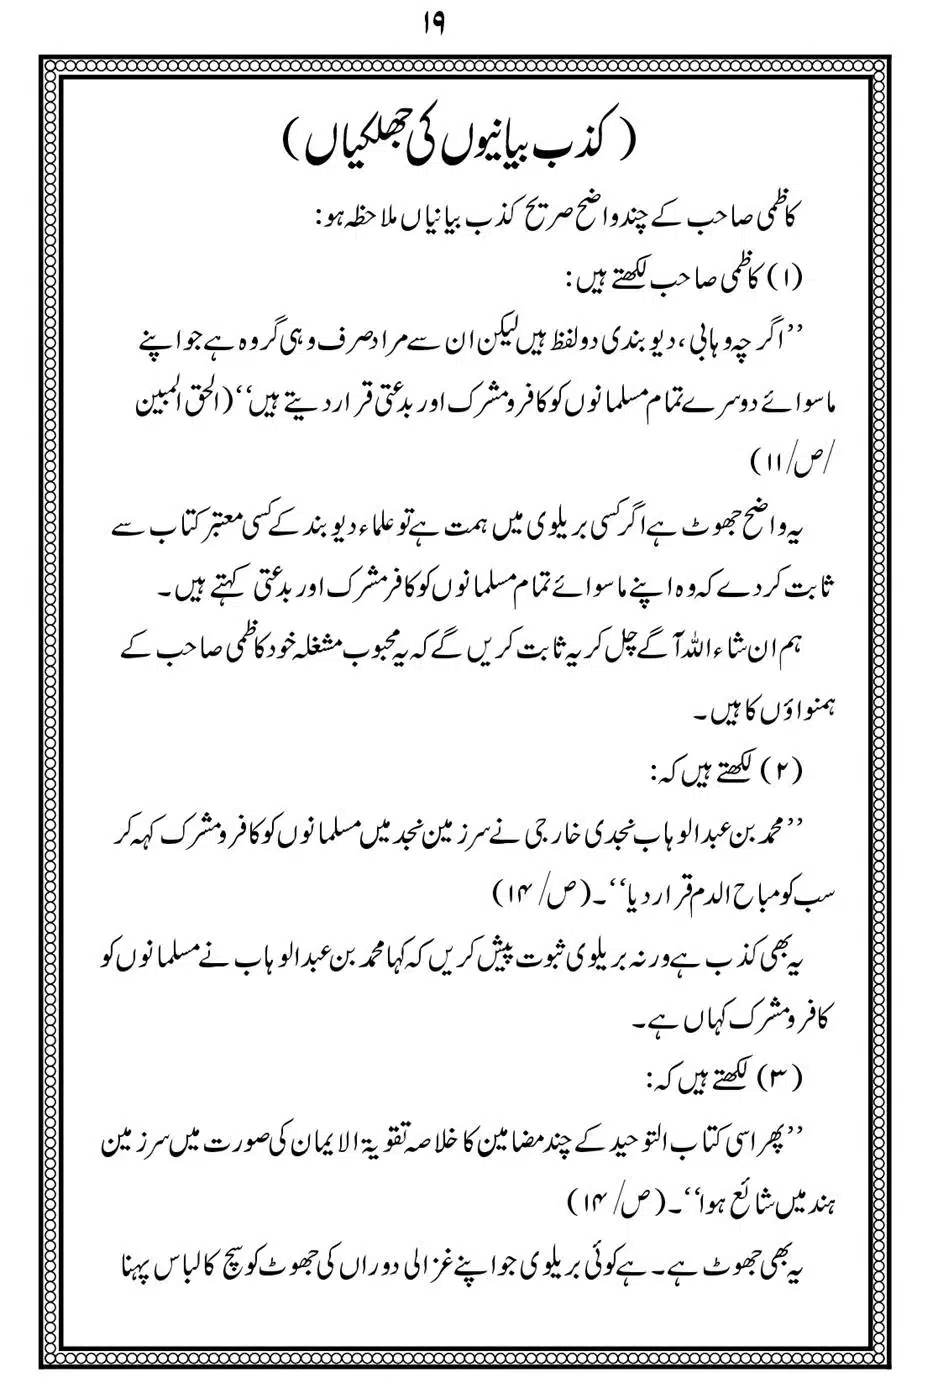 ۱۹
(کذب بیانیوں کی جھلکیاں)
کاظمی صاحب کے چند واضح صریح کذب بیانیاں ملاحظہ ہو:
(۱) کاظمی صاحب لکھتے ہیں:
’’اگرچہ وہابی، دیوبندی دو لفظ ہیں لیکن ان سے مراد صرف وہی گروہ ہے جو اپنے
ماسوائے دوسرے تمام مسلمانوں کو کافر و مشرک اور بدعتی قرار دیتے ہیں‘‘ (الحق المبین
/ص/۱۱)
یہ واضح جھوٹ ہے اگر کسی بریلوی میں ہمت ہے تو علماء دیوبند کے کسی معتبر کتاب سے
ثابت کر دے کہ وہ اپنے ماسوائے تمام مسلمانوں کو کافر مشرک اور بدعتی کہتے ہیں۔
ہم ان شاء اللہ آگے چل کر یہ ثابت کریں گے کہ یہ محبوب مشغلہ خود کاظمی صاحب کے
ہمنواؤں کا ہیں۔
(۲) لکھتے ہیں کہ:
’’محمد بن عبدالوہاب نجدی خارجی نے سرزمین نجد میں مسلمانوں کو کافر و مشرک کہہ کر
سب کو مباح الدم قرار دیا‘‘۔ (ص/۱۴)
یہ بھی کذب ہے ورنہ بریلوی ثبوت پیش کریں کہ کہا محمد بن عبدالوہاب نے مسلمانوں کو
کافر و مشرک کہاں ہے۔
(۳) لکھتے ہیں کہ:
’’پھر اسی کتاب التوحید کے چند مضامین کا خلاصہ تقویۃ الایمان کی صورت میں سرزمین
ہند میں شائع ہوا‘‘۔ (ص/۱۴)
یہ بھی جھوٹ ہے۔ ہے کوئی بریلوی جو اپنے غزالی دوراں کی جھوٹ کو سچ کا لباس پہنا